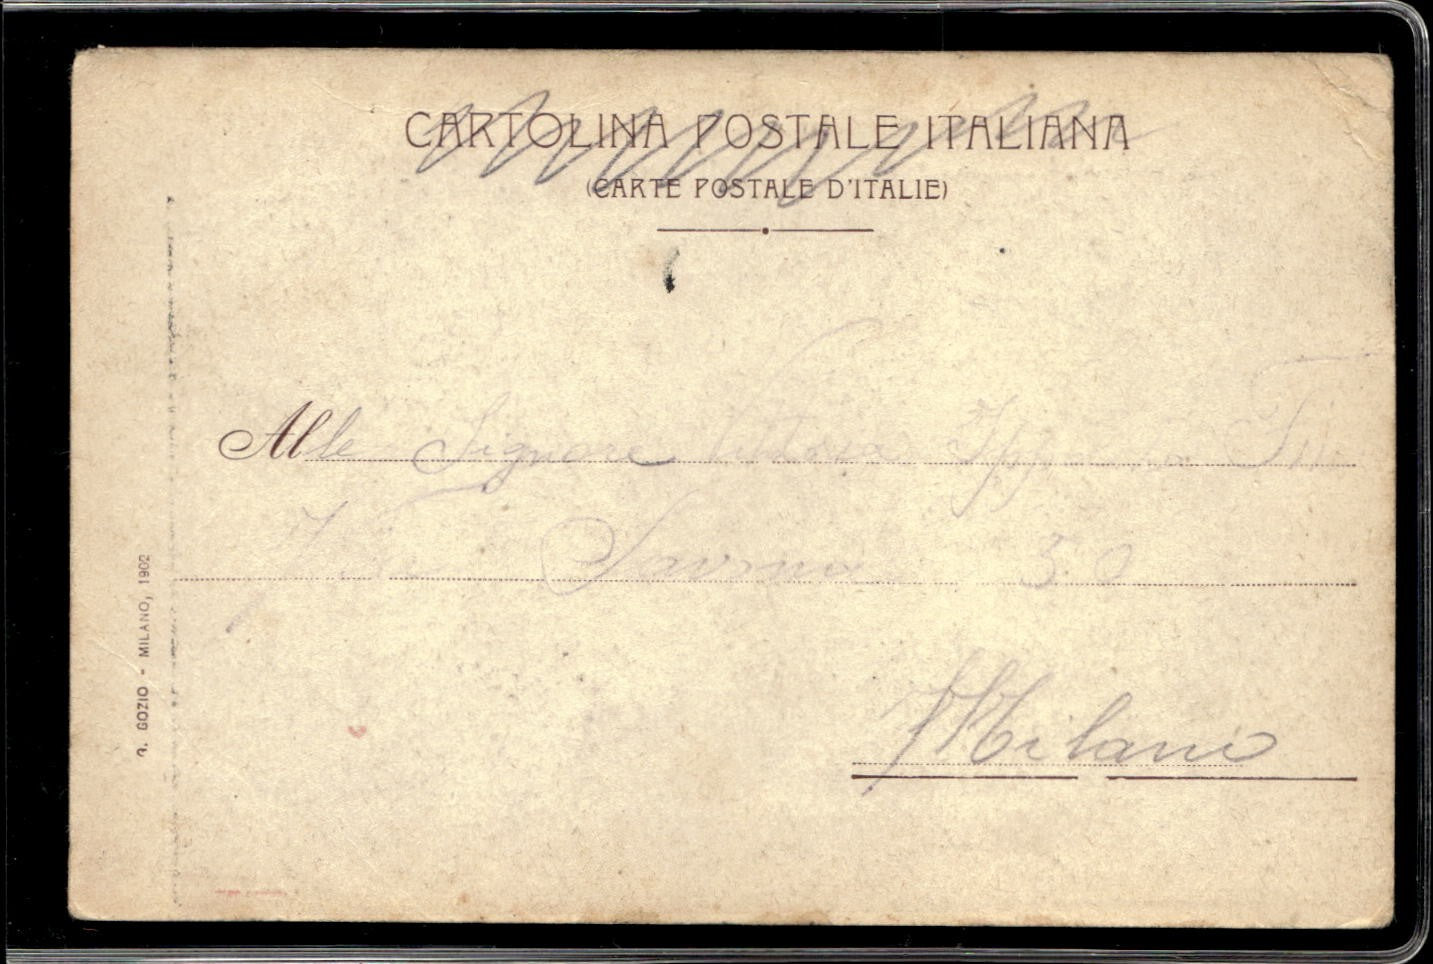 CARTOLINA POSTALE ITALIANA
(CARTE POSTALE D'ITALIE)
Alle Signore Vittoria
Via Savona 50
Milano
GOZIO - MILANO, 1902